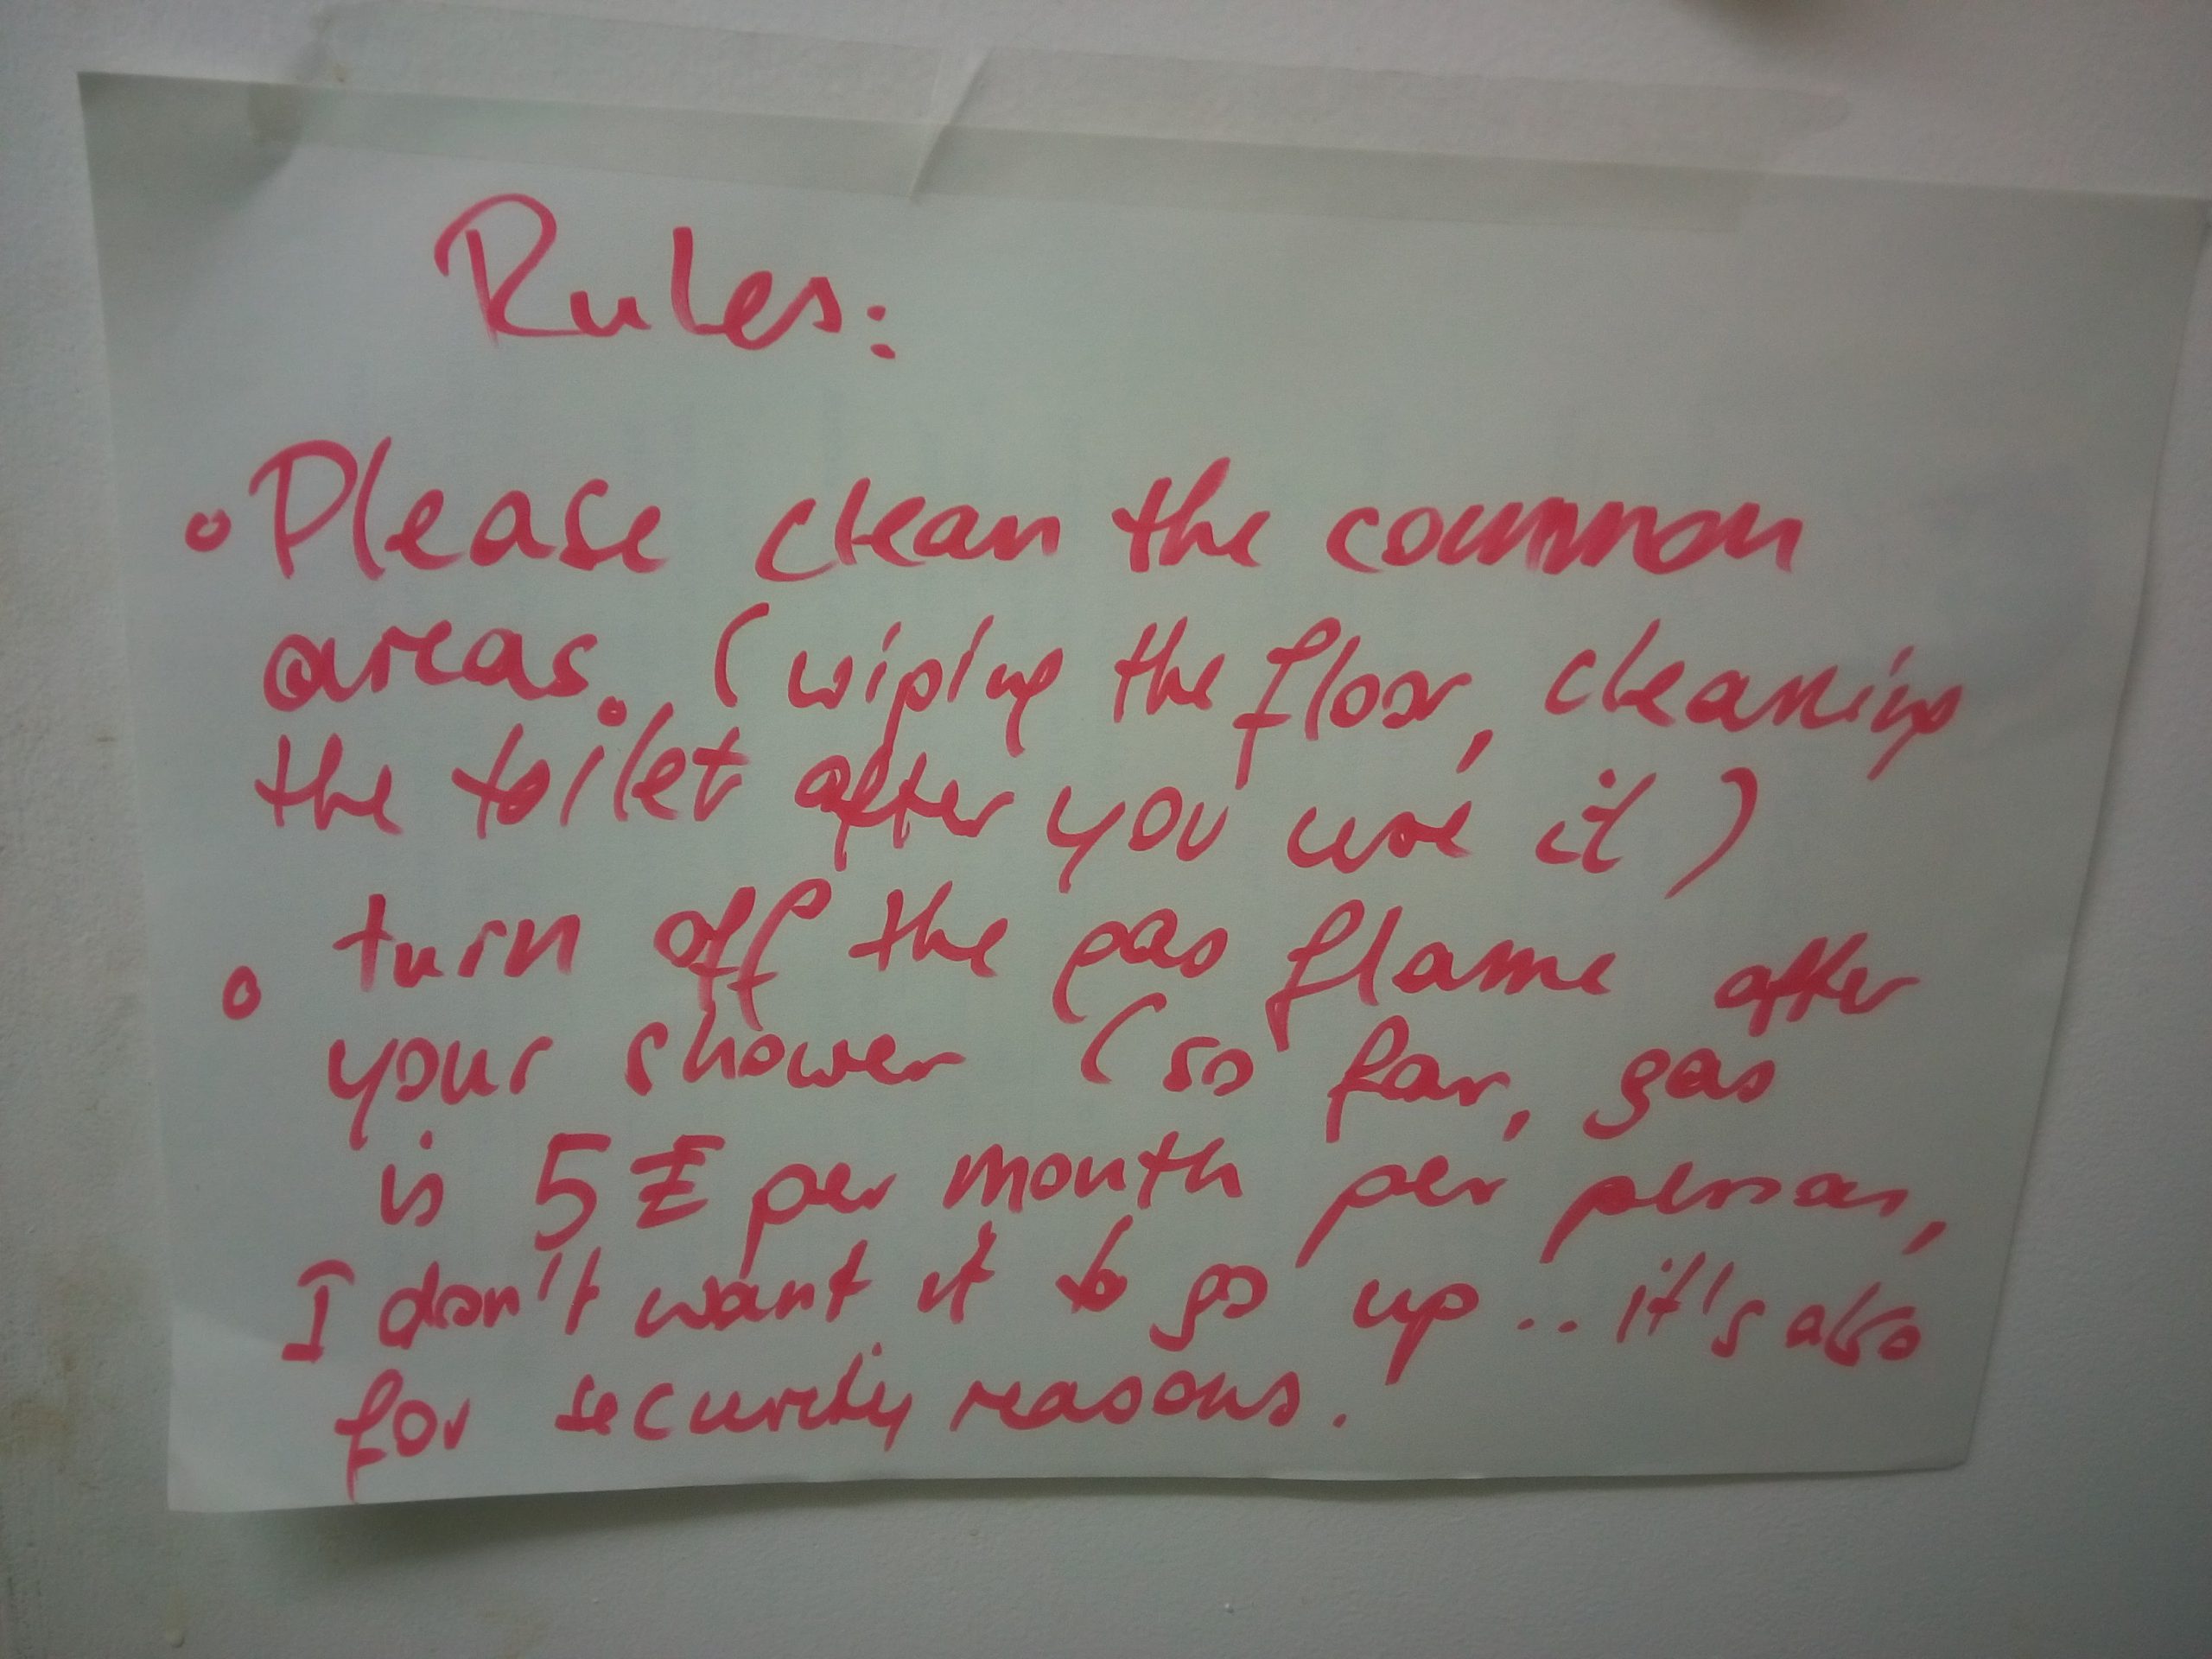 Rules:
• Please clean the common
areas. (wiping the floor, cleaning
the toilet after you use it)
• turn off the gas flame after
your shower (so far, gas
is 5 per month per person,
I don't want it to go up.. it's also
for security reasons.